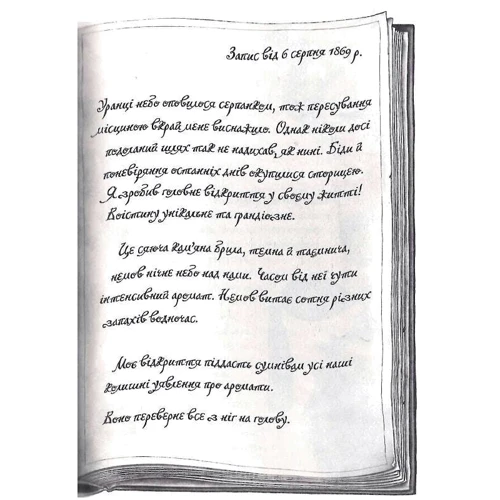 Запис від 6 серпня 1869 р.
Уранці небо оповилося серпанком, тож пересування
місциною вкрай мене виснажило. Однак ніколи досі
подоланий шлях так не надихав, як нині. Біди й
поневіряння останніх днів окупилися сторицею.
Я зробив головне відкриття у своєму житті!
Воістину унікальне та грандіозне.
Це сяюча кам'яна брила, темна й таємнича,
немов нічне небо над нами. Часом від неї чути
інтенсивний аромат. Немов витає сотня різних
запахів водночас.
Моє відкриття піддасть сумнівам усі наші
колишні уявлення про аромати.
Воно переверне все з ніг на голову.